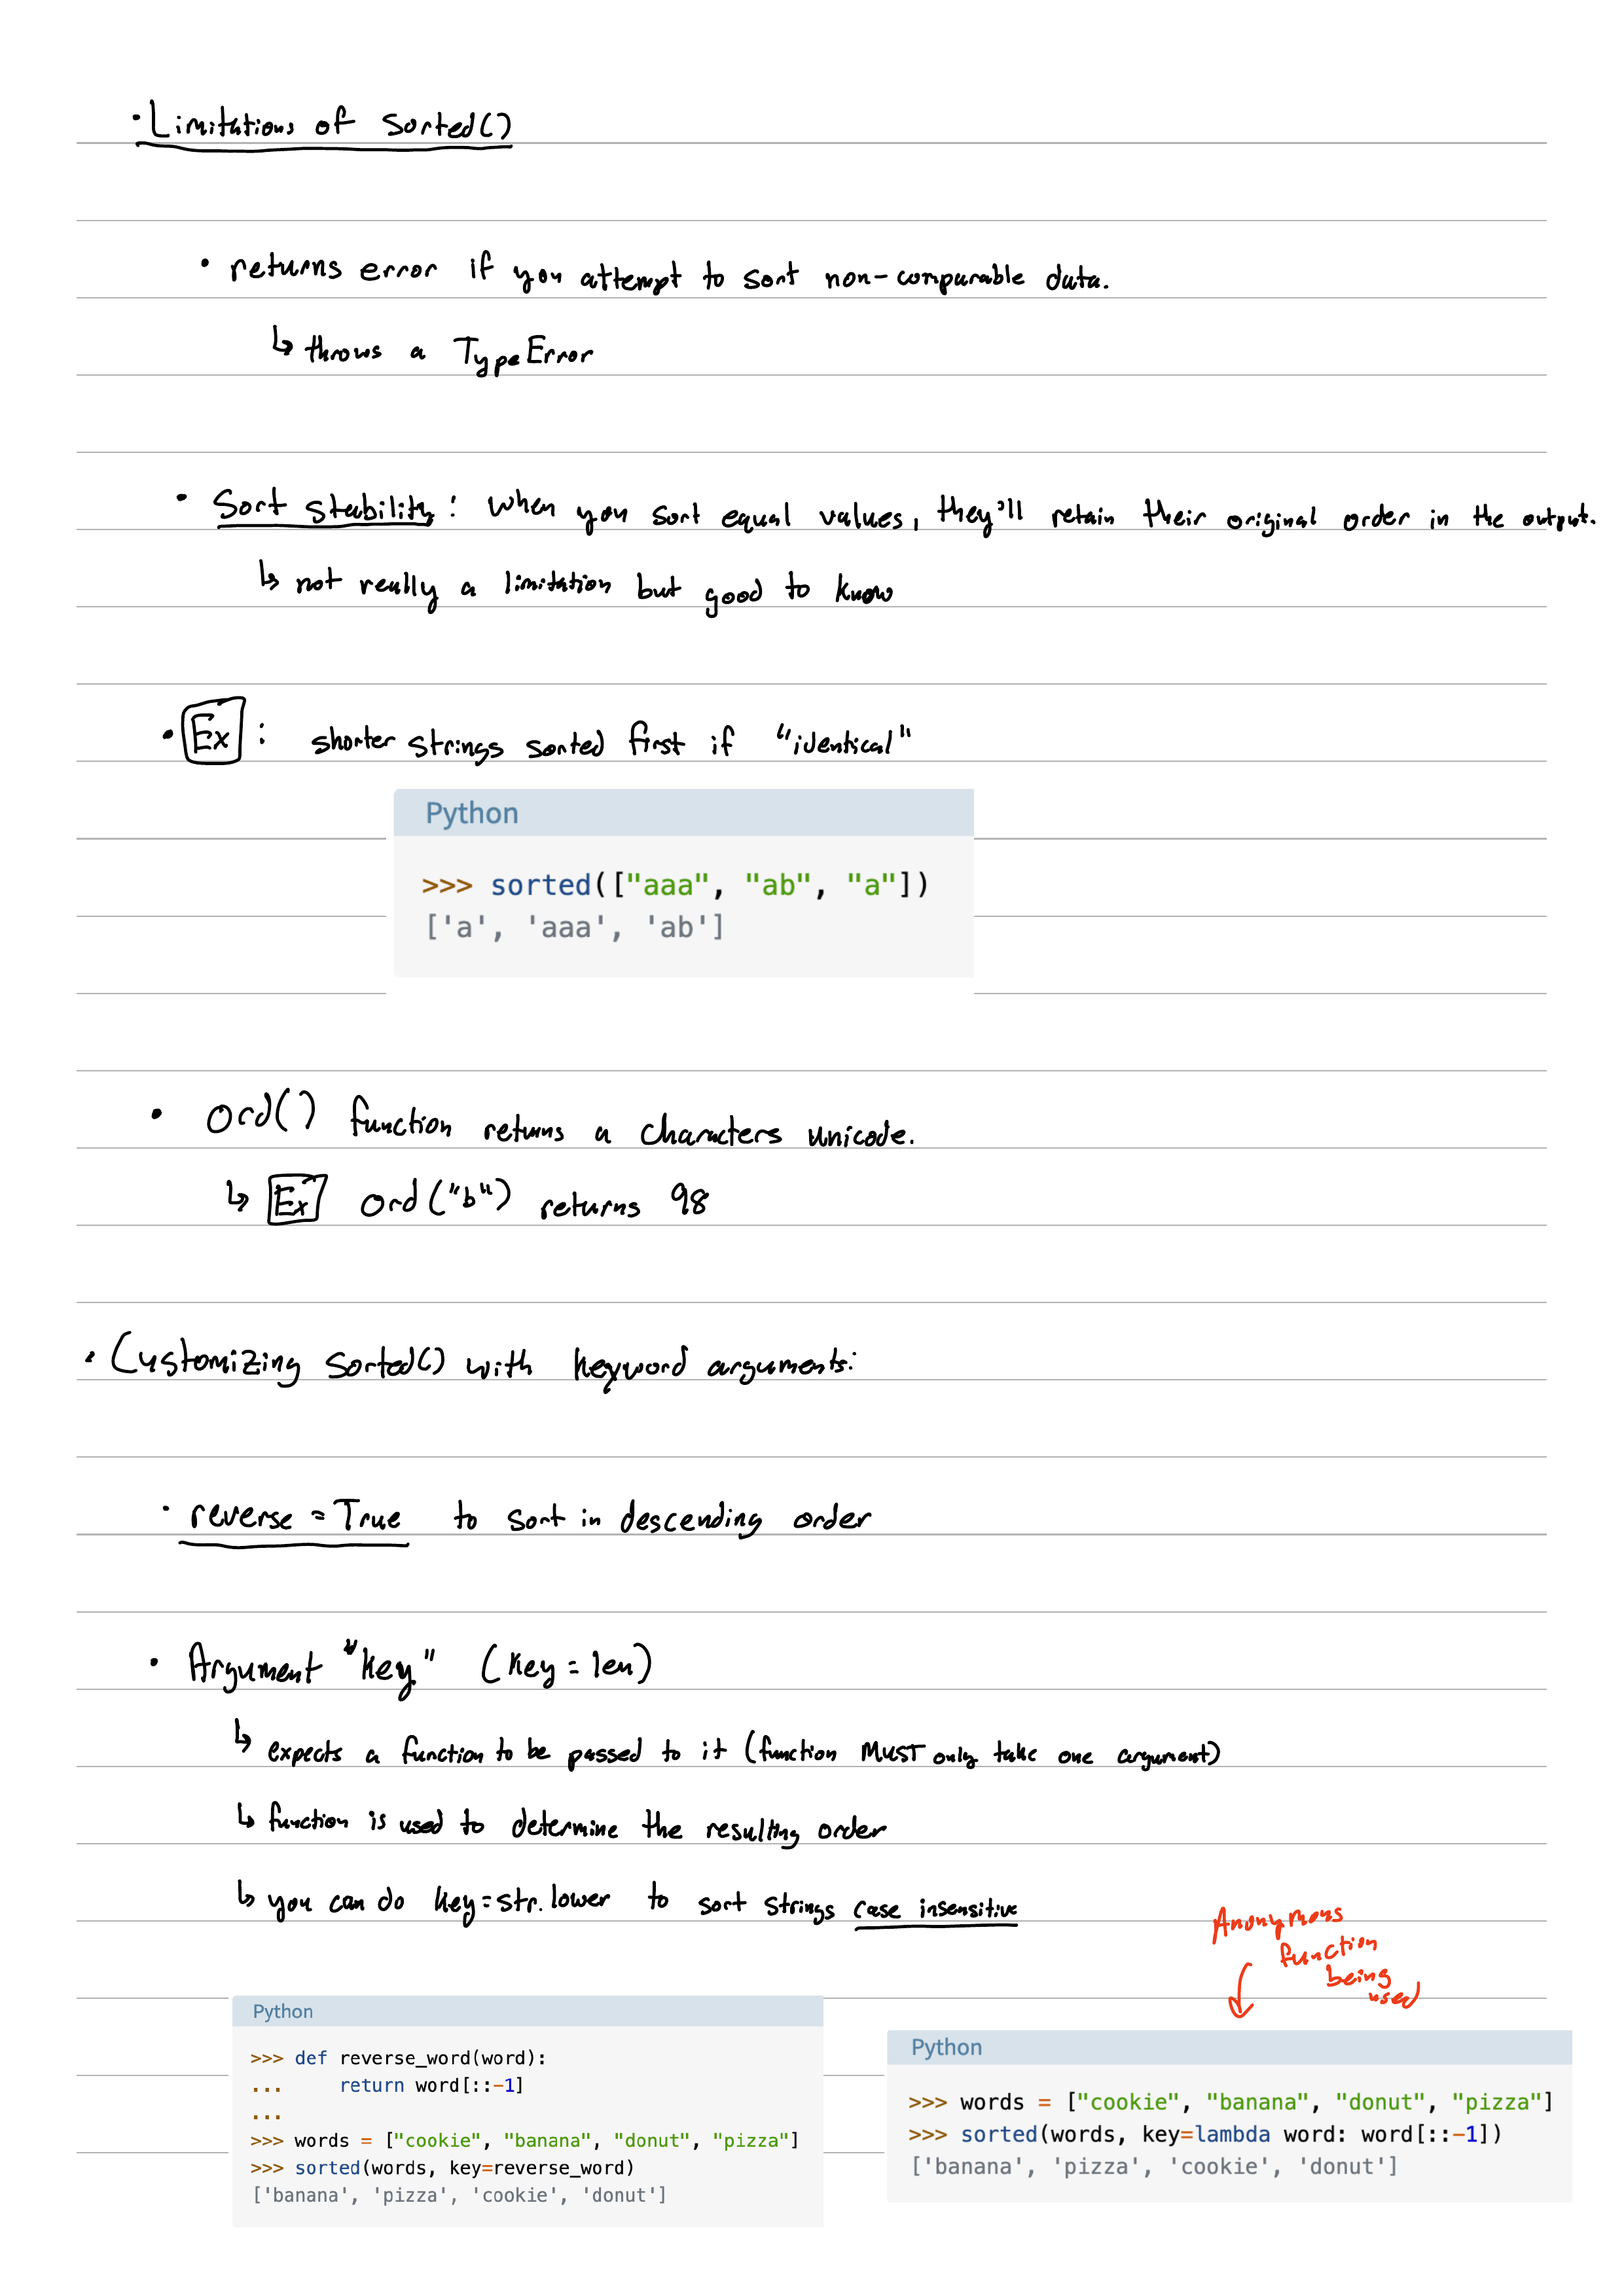 • Limitations of sorted()
• returns error if you attempt to sort non-comparable data.
↳ throws a TypeError
• Sort stability: When you sort equal values, they'll retain their original order in the output.
↳ not really a limitation but good to know
• Ex: shorter strings sorted first if "identical"
Python
>>> sorted(["aaa", "ab", "a"])
['a', 'aaa', 'ab']
• ord() function returns a characters unicode.
↳ Ex ord("b") returns 98
• Customizing sorted() with keyword arguments:
• reverse = True to sort in descending order
• Argument "key" (key = len)
↳ expects a function to be passed to it (function MUST only take one argument)
↳ function is used to determine the resulting order
↳ you can do key=str.lower to sort strings case insensitive
Anonymous
function
being
used
Python
>>> def reverse_word(word):
...     return word[::-1]
...
>>> words = ["cookie", "banana", "donut", "pizza"]
>>> sorted(words, key=reverse_word)
['banana', 'pizza', 'cookie', 'donut']
Python
>>> words = ["cookie", "banana", "donut", "pizza"]
>>> sorted(words, key=lambda word: word[::-1])
['banana', 'pizza', 'cookie', 'donut']